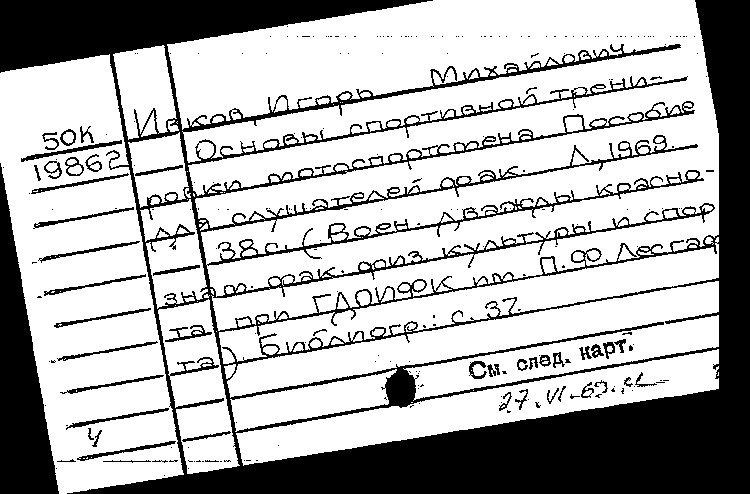 Ивков, Игорь Михайлович.
50к Основы спортивной трени-
19862 ровки мотоспортсмена. Пособие
для слушателей фак. Л., 1969.
38с. (Воен. дважды красно-
знам. фак. физ. культуры и спор
та при ГДОИФК им. П.Ф. Лесгаф
та). Библиогр.: с. 37.
См. след. карт.
4